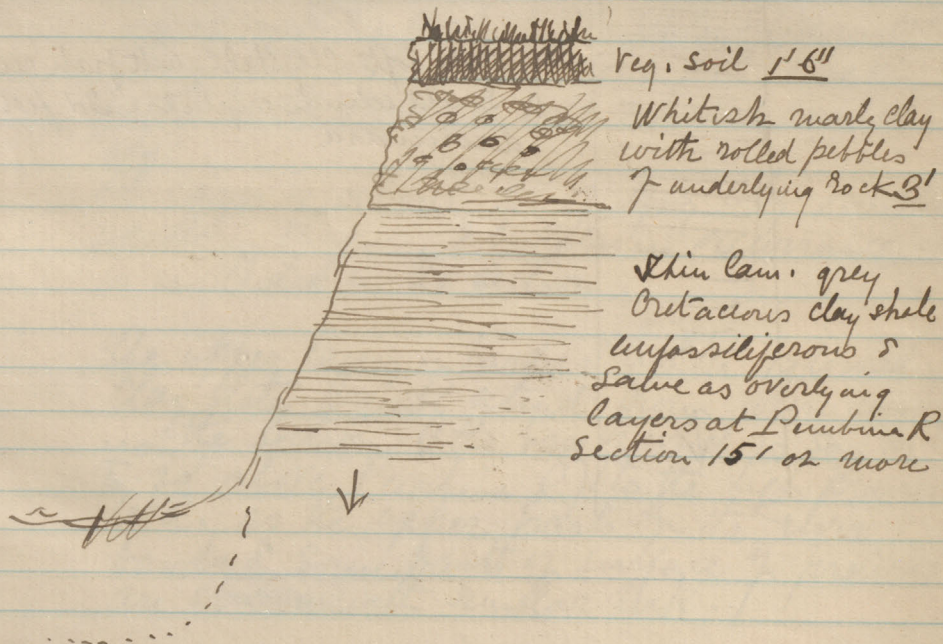 Veg. soil 1' 6"
Whitish marly clay
with rolled pebbles
of underlying rock 3'
Thin lam. grey
Cretaceous clay shale
unfossiliferous &
Same as overlying
layers at Pembina R
Section 15' or more